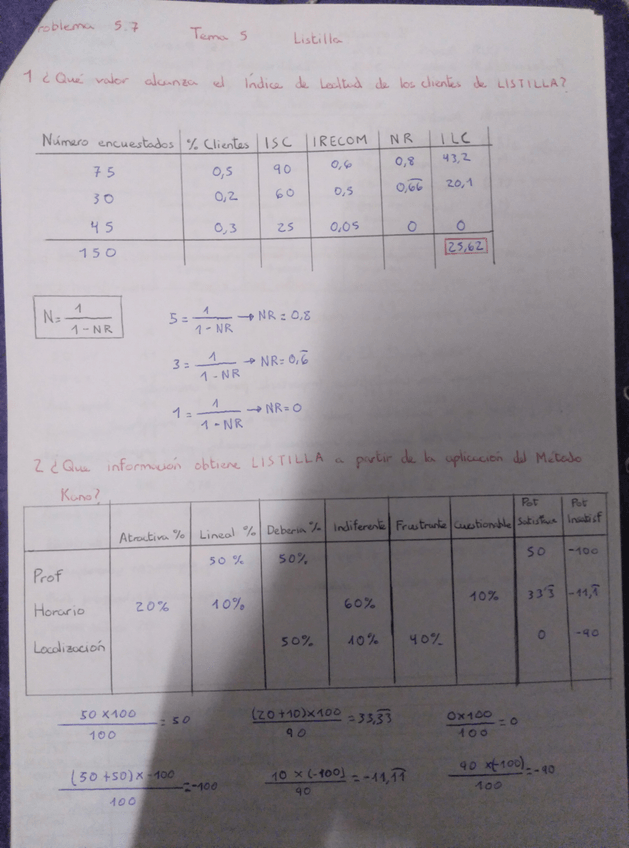 roblema 5.7 Tema 5 Listilla
1 ¿Qué valor alcanza el Índice de Lealtad de los clientes de LISTILLA?
Número encuestados % Clientes ISC IRECOM NR ILC
75 0,5 90 0,6 0,8 43,2
30 0,2 60 0,5 0,6̅6̅ 20,1
45 0,3 25 0,05 0 0
150 25,62
N = 1 / 1 - NR
5 = 1 / 1 - NR → NR = 0,8
3 = 1 / 1 - NR → NR = 0,6̅
1 = 1 / 1 - NR → NR = 0
2 ¿Que información obtiene LISTILLA a partir de la aplicación del Método
Kano?
Atractiva % Lineal % Deberia % Indiferente Frustrante Cuestionable Pot Satisfacc Pot Insatisf
Prof 50% 50% 50 -100
Horario 20% 10% 60% 10% 33,3̅ -11,1̅
Localización 50% 10% 40% 0 -90
50 x 100 / 100 = 50 (20 + 10) x 100 / 90 = 33,3̅3̅ 0 x 100 / 100 = 0
(50 + 50) x -100 / 100 = -100 10 x (-100) / 90 = -11,1̅1̅ 90 x (-100) / 100 = -90